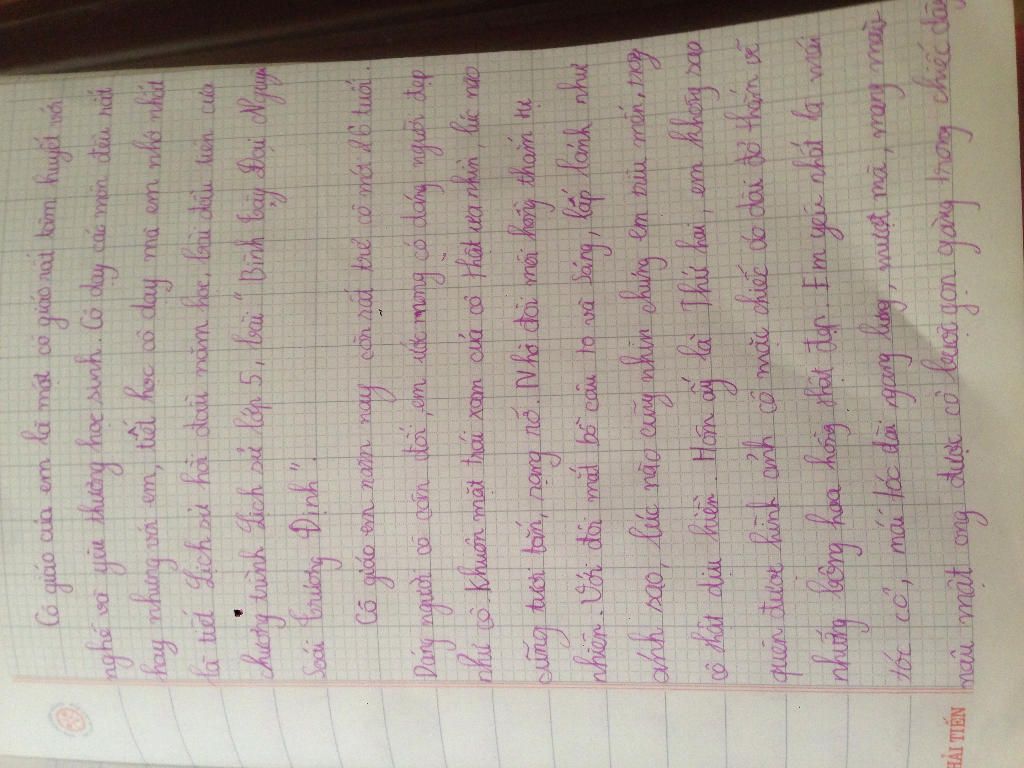 Cô giáo của em là một cô giáo rất tâm huyết với
nghề và yêu thương học sinh. Cô dạy các môn đều rất
hay nhưng với em, tiết học cô dạy mà em nhớ nhất
là tiết Lịch sử hồi đầu năm học, bài đầu tiên của
chương trình Lịch sử lớp 5, bài " Bình Tây Đại Nguyên
Soái Trương Định".
Cô giáo em năm nay còn rất trẻ cô mới 26 tuổi.
Dáng người cô cân đối, em ước mong có dáng người đẹp
như cô. Khuôn mặt trái xoan của cô thật ưa nhìn, lúc nào
cũng tươi tắn, rạng rỡ. Nhờ đôi môi hồng thắm tự
nhiên. Với đôi mắt bồ câu to và sáng, lấp lánh như
ánh sao, lúc nào cũng nhìn chúng em trìu mến,
cô thật dịu hiền. Hôm ấy là Thứ hai, em không sao
quên được hình ảnh cô mặc chiếc áo dài đỏ thắm vẽ
những bông hoa hồng thật đẹp. Em yêu nhất là mái
tóc cô, mái tóc dài ngang lưng, mượt mà, mang màu
nâu mật ong được cô buộc gọn gàng trong chiếc dây
HẢI TIẾN